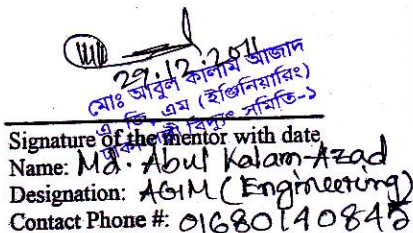 29.12.2011
মোঃ আবুল কালাম আজাদ
এ জি, এম (ইঞ্জিনিয়ারিং)
পল্লী বিদ্যুৎ সমিতি-১
Signature of the mentor with date
Name: Md. Abul Kalam-Azad
Designation: AGM (Engineering)
Contact Phone #: